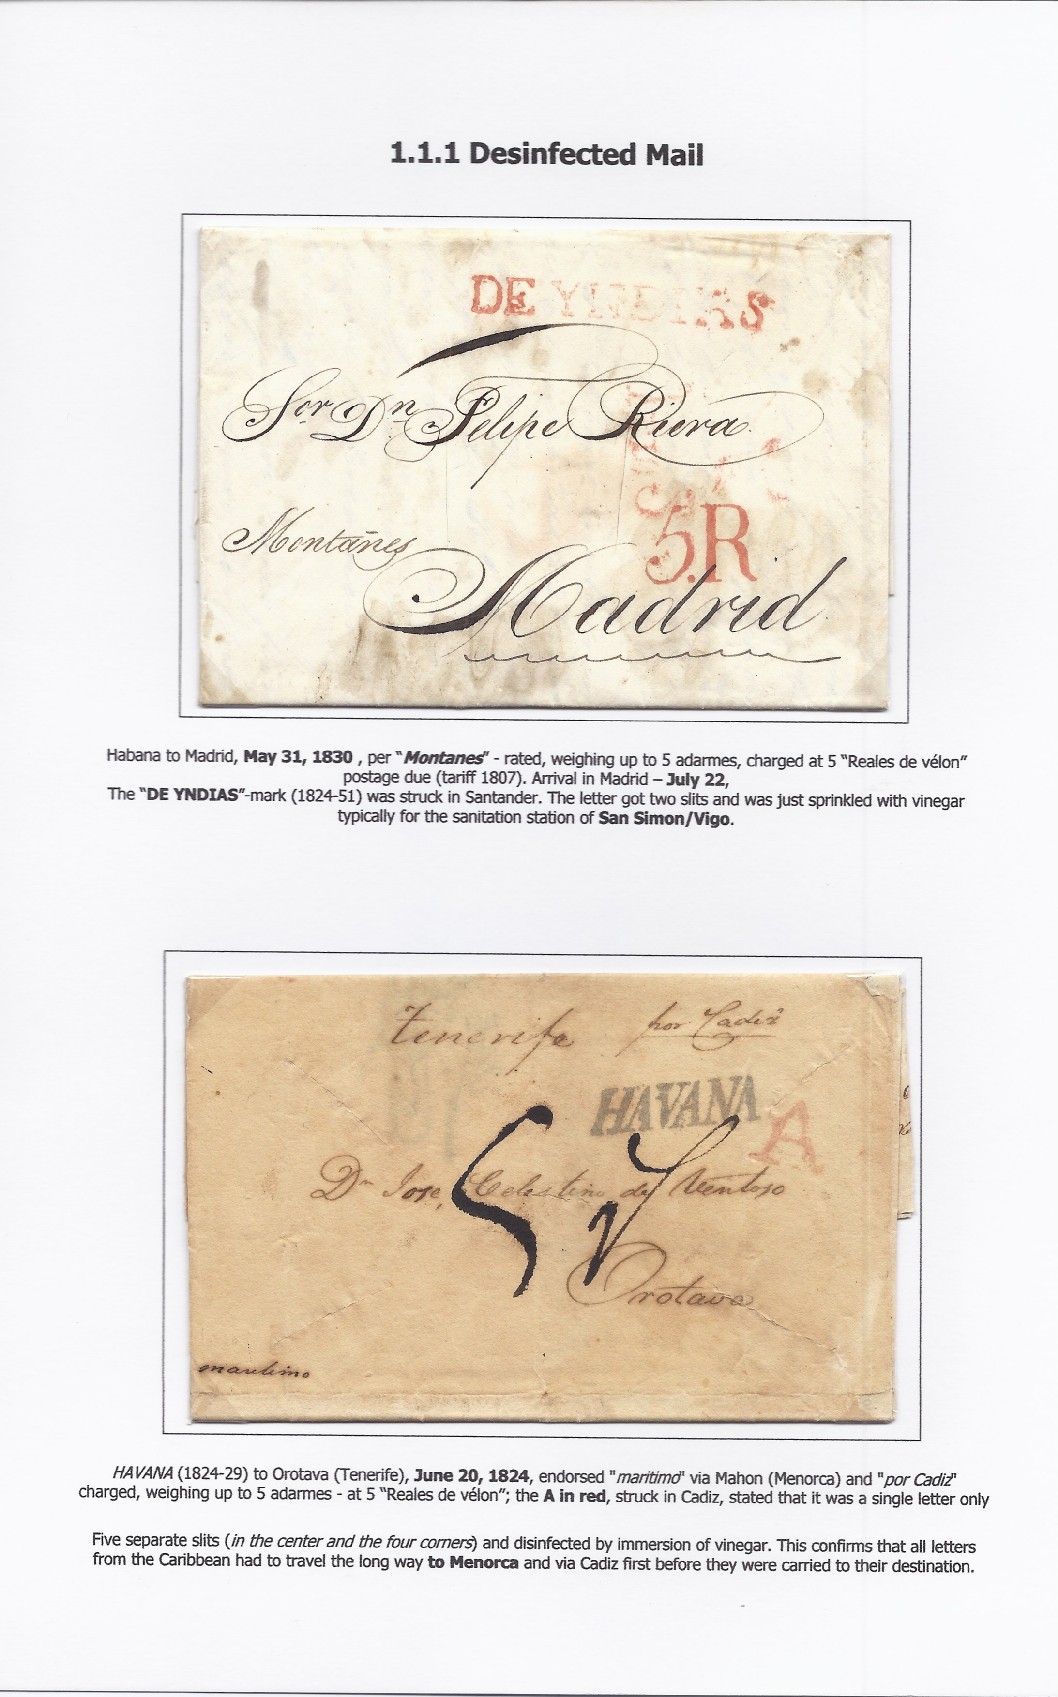 1.1.1 Desinfected Mail
DE YNDIAS
Sor Dn Felipe Riera
5.R
Montañes
Madrid
Habana to Madrid, May 31, 1830 , per "Montanes" - rated, weighing up to 5 adarmes, charged at 5 "Reales de vélon"
postage due (tariff 1807). Arrival in Madrid – July 22,
The "DE YNDIAS"-mark (1824-51) was struck in Santander. The letter got two slits and was just sprinkled with vinegar
typically for the sanitation station of San Simon/Vigo.
Tenerife por Cadiz
HAVANA
A
5
Dn Jose Celestino de Ventoso
Orotava
maritimo
HAVANA (1824-29) to Orotava (Tenerife), June 20, 1824, endorsed "maritimo" via Mahon (Menorca) and "por Cadiz"
charged, weighing up to 5 adarmes - at 5 "Reales de vélon"; the A in red, struck in Cadiz, stated that it was a single letter only
Five separate slits (in the center and the four corners) and disinfected by immersion of vinegar. This confirms that all letters
from the Caribbean had to travel the long way to Menorca and via Cadiz first before they were carried to their destination.